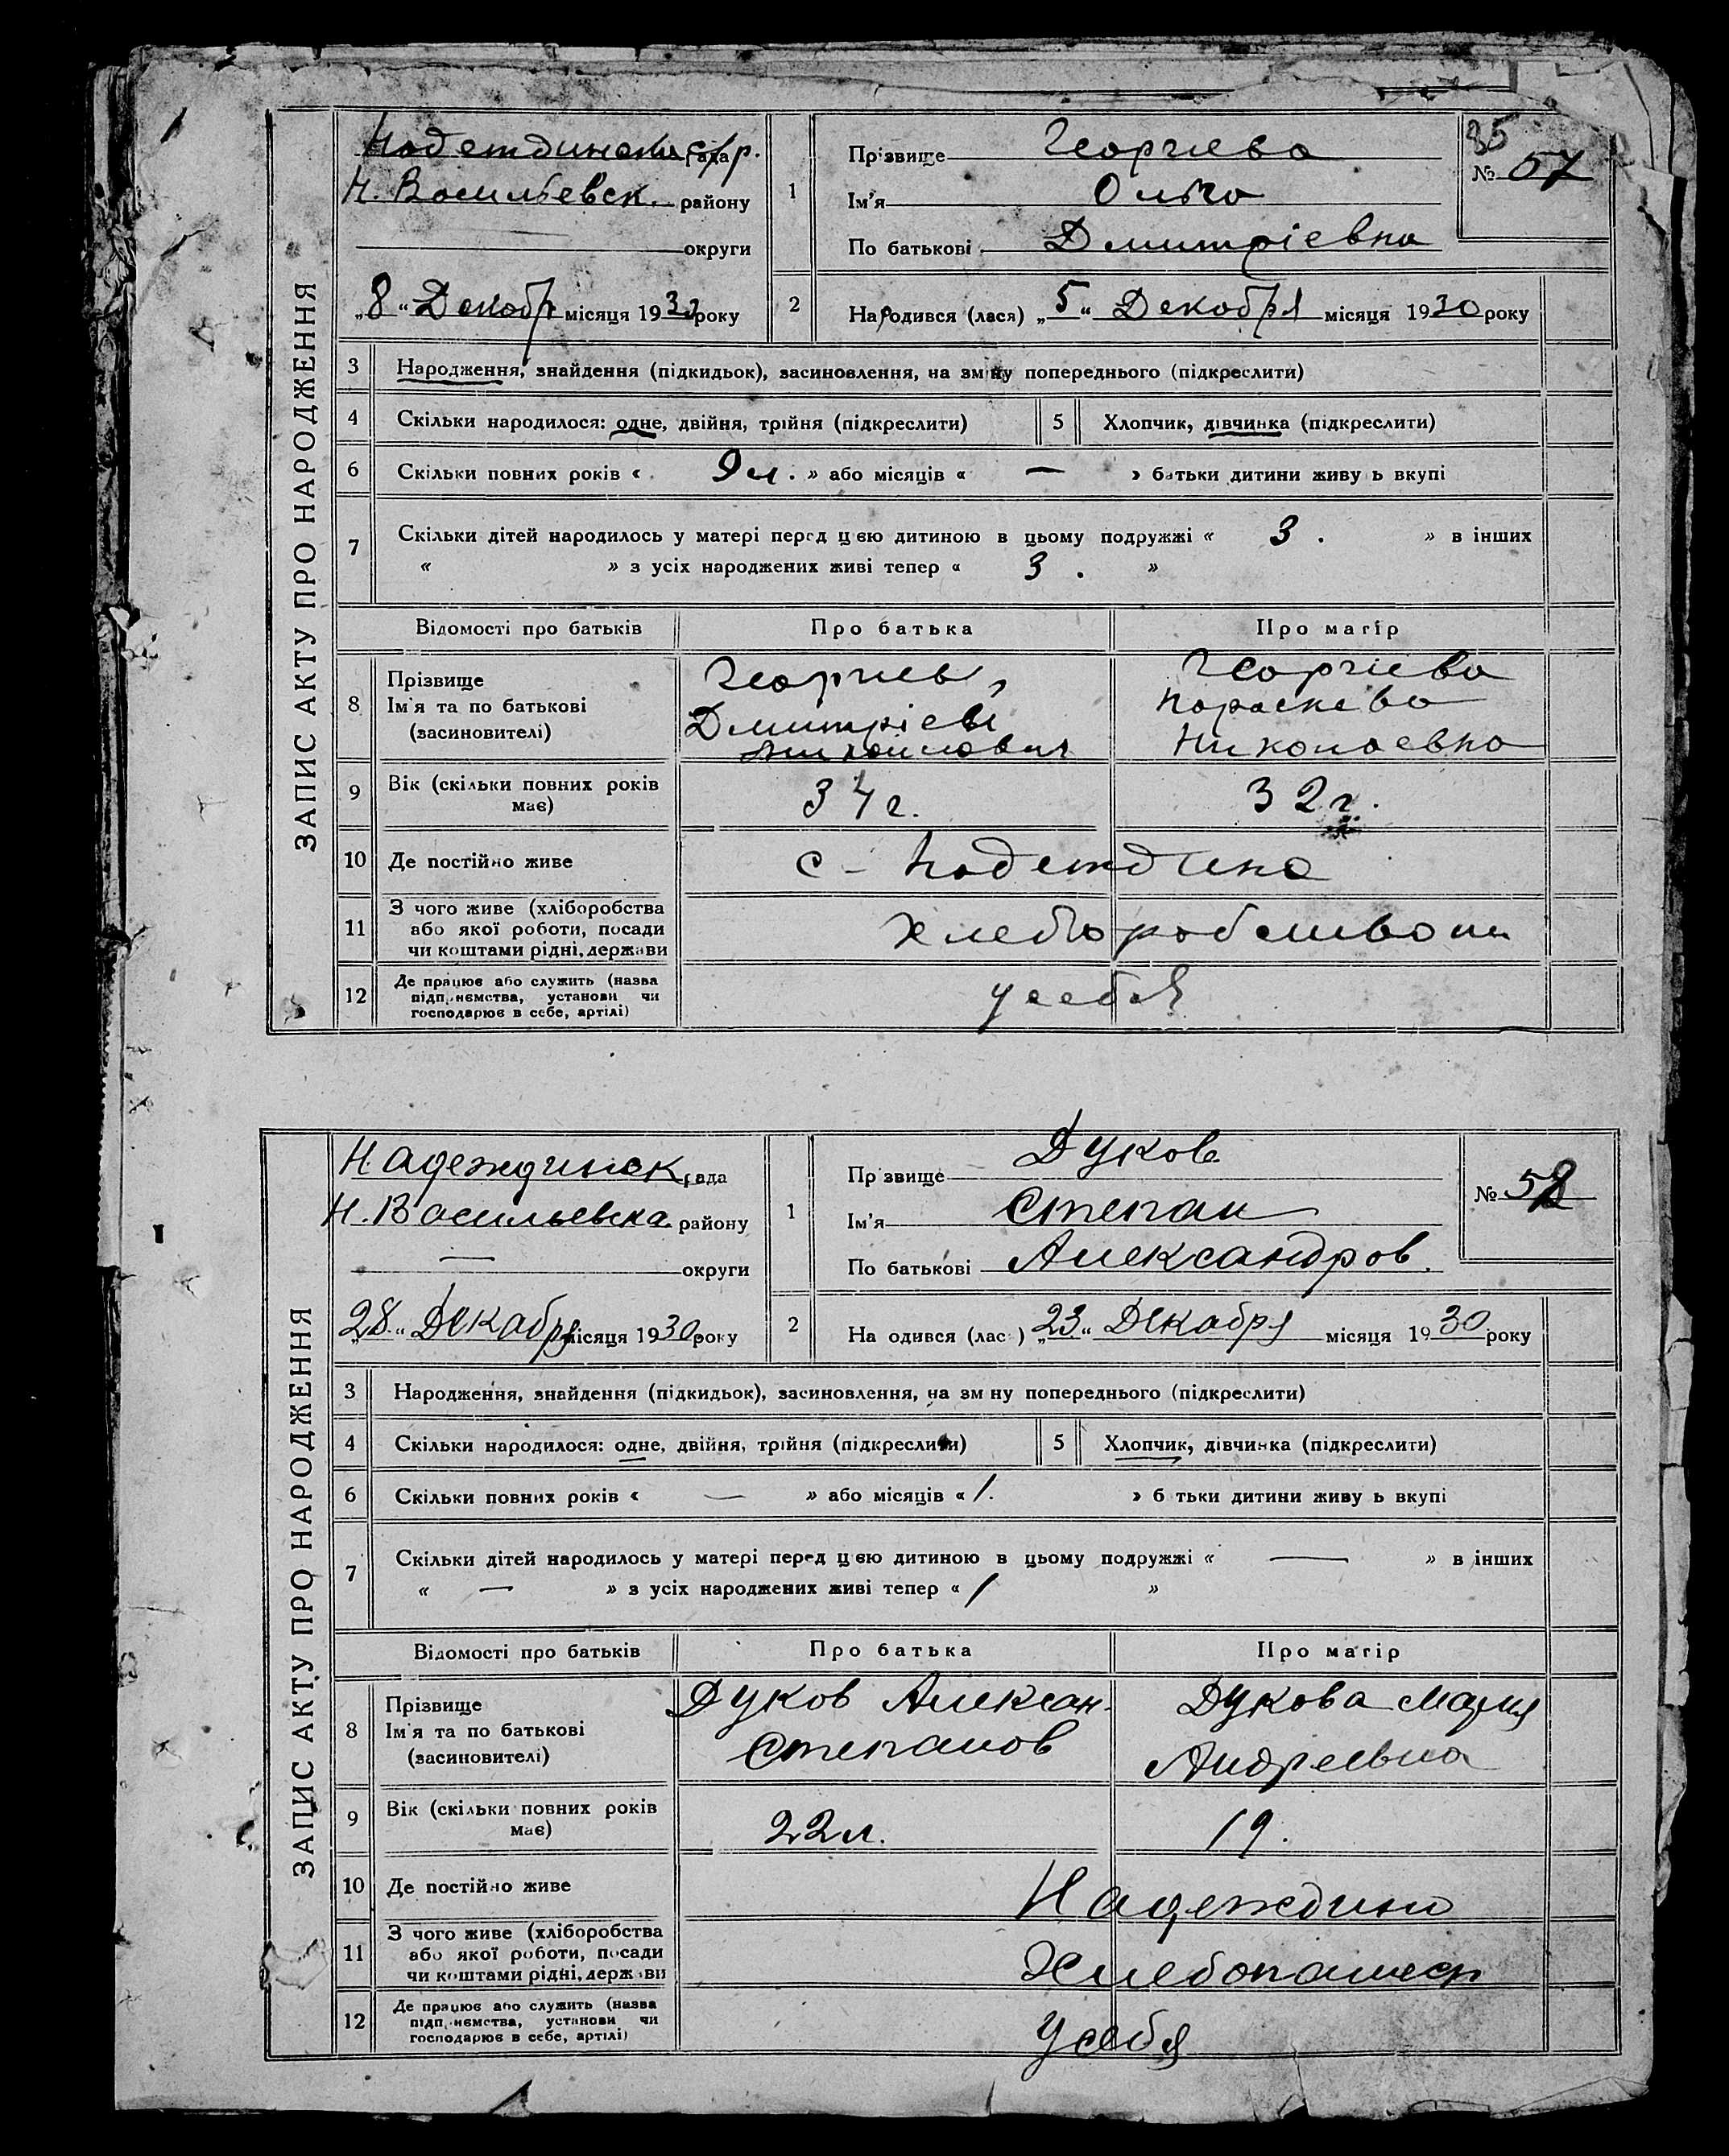 ЗАПИС АКТУ ПРО НАРОДЖЕННЯ
Надеждинска с/р. рада
Н. Васильевск. району
округи
„8“ Декабр місяця 1930 року
35
№ 57
1
Прізвище Георгиева
Ім'я Ольга
По батькові Дмитріевна
2
Народився (лася) „5“ Декабря місяця 1930 року
3 Народження, знайдення (підкидьок), засиновлення, на зміну попереднього (підкреслити)
4 Скільки народилося: одне, двійня, трійня (підкреслити) 5 Хлопчик, дівчинка (підкреслити)
6 Скільки повних років « 9 л. » або місяців « — » батьки дитини живу ь вкупі
7 Скільки дітей народилось у матері перед цею дитиною в цьому подружжі « 3 . » в інших
« » з усіх народжених живі тепер « 3 . »
Відомості про батьків Про батька Про матір
8 Прізвище Ім'я та по батькові (засиновителі)
Георгиев, Дмитріев Михайлович
Георгиева Параскева Николаевна
9 Вік (скільки повних років має) 34 г. 32 г.
10 Де постійно живе с - Надеждина
11 З чого живе (хліборобства
або якої роботи, посади
чи коштами рідні, держави
Хлеборобством
12 Де працює або служить (назва
підприємства, установи чи
господарює в себе, артілі)
у себя
ЗАПИС АКТУ ПРО НАРОДЖЕННЯ
Надеждинск рада
Н. Васильевка району
— округи
„28“ Декабря місяця 1930 року
№ 58
1
Пр звище Дуков
Ім'я Степан
По батькові Александров.
2
На одився (лас ) „23“ Декабря місяця 1930 року
3 Народження, знайдення (підкидьок), засиновлення, на зм ну попереднього (підкреслити)
4 Скільки народилося: одне, двійня, трійня (підкреслити) 5 Хлопчик, дівчинка (підкреслити)
6 Скільки повних років « — » або місяців « 1. » б тьки дитини живу ь вкупі
7 Скільки дітей народилось у матері перед цею дитиною в цьому подружжі « — » в інших
« — » з усіх народжених живі тепер « 1 »
Відомості про батьків Про батька Про матір
8 Прізвище Ім'я та по батькові (засиновителі)
Дуков Алексан. Степанов
Дукова Мария Андреевна
9 Вік (скільки повних років має) 22 л. 19.
10 Де постійно живе Надеждино
11 З чого живе (хліборобства
або якої роботи, посади
чи коштами рідні, держ ви
12 Де працює або служить (назва
підпр ємства, установи чи
господарює в себе, артілі)
У себя